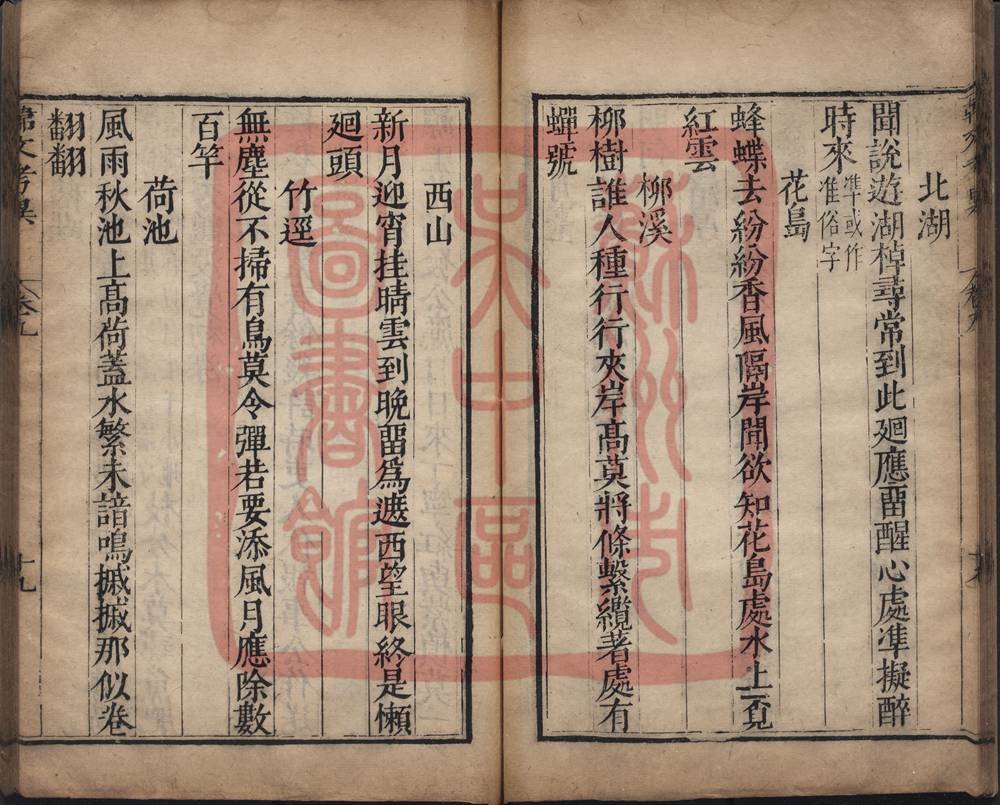 北湖
聞說遊湖棹尋常到此廻應畱醒心處準擬醉
時來準或作准俗字
花島
蜂蝶去紛紛香風隔岸聞欲知花島處水上覓
紅雲
柳溪
柳樹誰人種行行夾岸高莫將條繫纜著處有
蟬號
西山
新月迎宵挂晴雲到晚畱爲遮西望眼終是懶
廻頭
竹逕
無塵從不掃有鳥莫令彈若要添風月應除數
百竿
荷池
風雨秋池上高荷蓋水繁未諳鳴摵摵那似卷
翻翻
韓文考異
卷九
十九
蘇州市吳中區圖書館